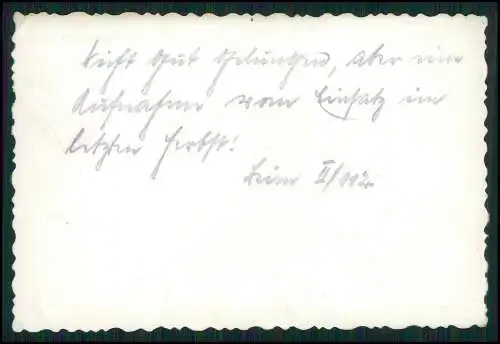 Nicht gut gelungen, aber eine
Aufnahme vom Einsatz im
letzten Herbst!
Beim II/112.